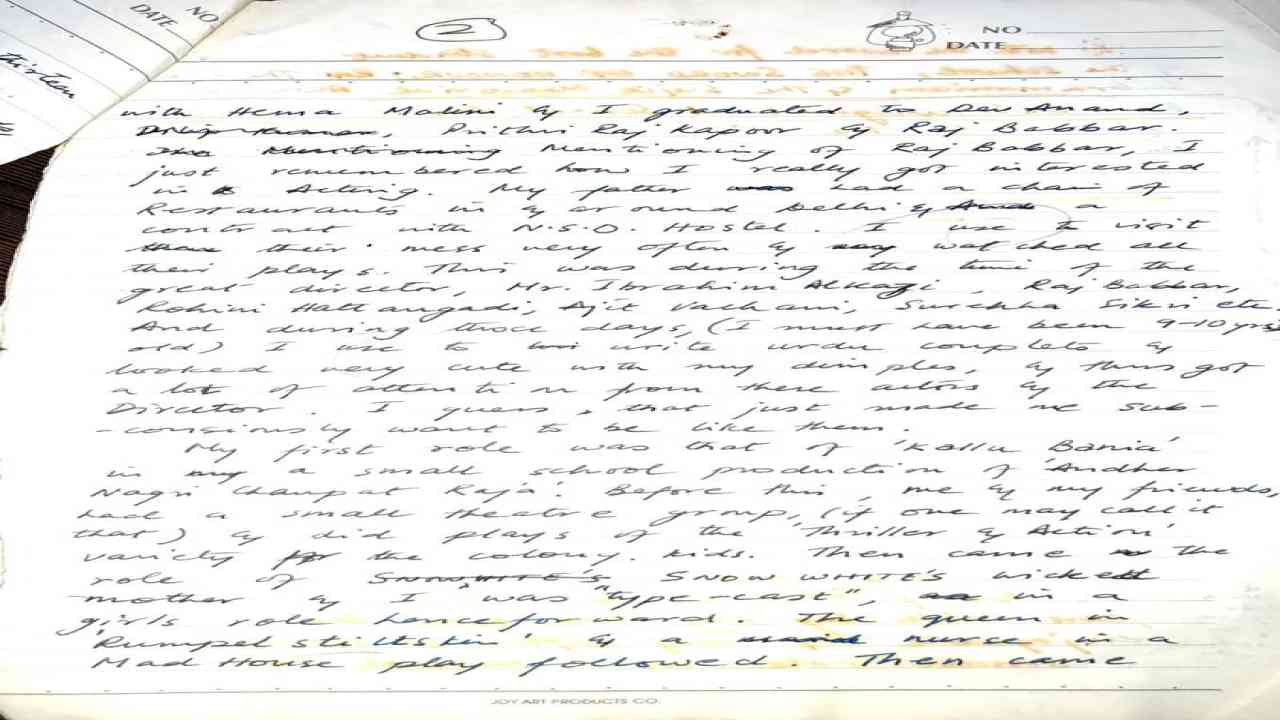 NO.
DATE
thirteen
2
NO
DATE
with Hema Malini & I graduated to Dev Anand,
Dilip Kumar, Prithvi Raj Kapoor & Raj Babbar.
The Mentioning Mentioning of Raj Babbar, I
just remembered how I really got interested
in Acting. My father was had a chain of
Restaurants in & around Delhi & And a
contract with N.S.D. Hostel. I use to visit
their mess very often & watched all
their plays. This was during the time of the
great director, Mr. Ibrahim Alkazi, Raj Babbar,
Rohini Hattangadi, Ajit Vachani, Surekha Sikri etc.
And during those days, (I must have been 9-10 yrs
old) I use to write urdu complets &
looked very cute with my dimples, & thus got
a lot of attention from these actors & the
Director. I guess, that just made me sub-
-consciously want to be like them.
My first role was that of 'Kallu Bania'
in my a small school production of 'Andher
Nagri Chaupat Raja'. Before this, me & my friends,
had a small theatre group, (if one may call it
that) & did plays of the 'Thriller & Action'
variety for the colony. kids. Then came the
role of SNOWWHITE'S SNOW WHITE'S wicked
mother & I was "type-cast", in a
girls role henceforward. The queen in
'Rumpelstiltskin' & a nurse in a
Mad House play followed. Then came
JOY ART PRODUCTS CO.